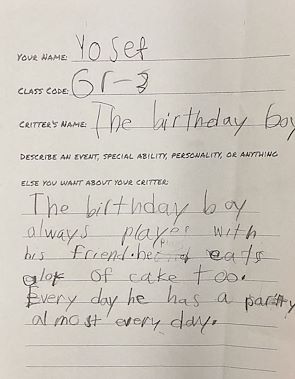 YOUR NAME: Yosef
CLASS CODE: Gr-3
CRITTER'S NAME: The birthday boy
DESCRIBE AN EVENT, SPECIAL ABILITY, PERSONALITY, OR ANYTHING
ELSE YOU WANT ABOUT YOUR CRITTER:
The birthday boy
always player with
his friend. he eats
alot of cake too.
Every day he has a party
almost every day.